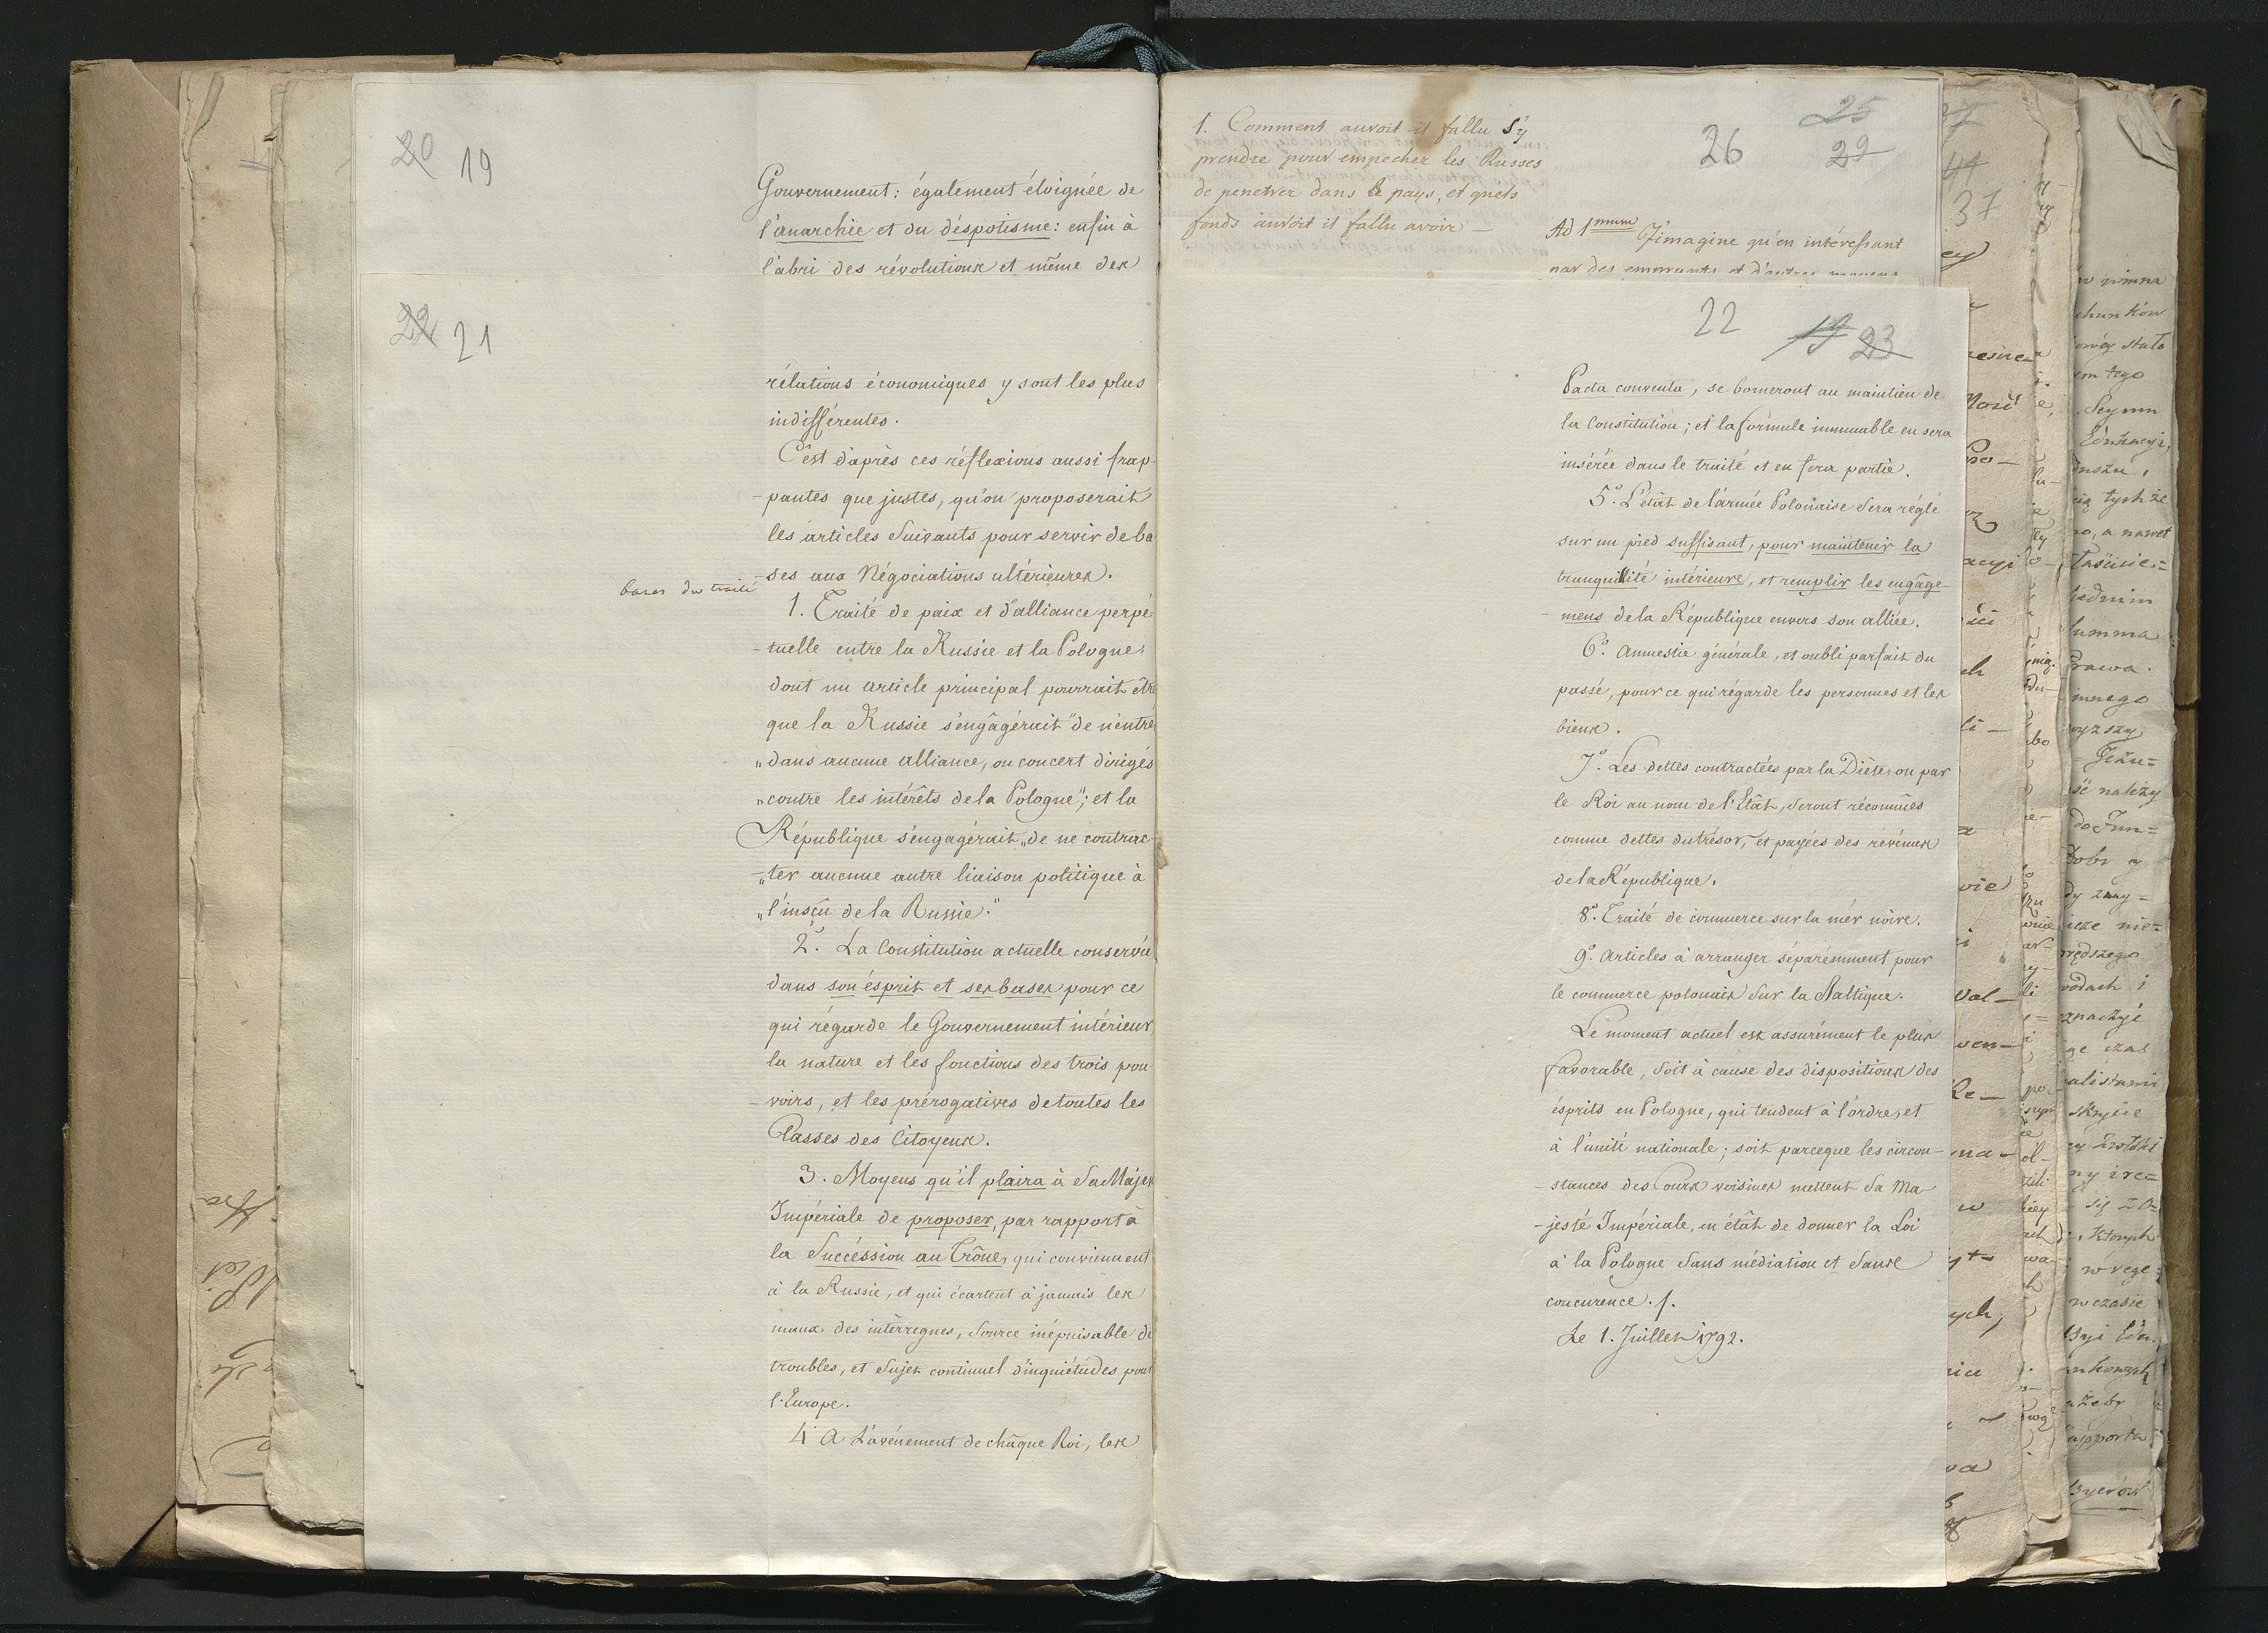 20 19
Gouvernement: également éloignée de
l'anarchie et du déspotisme: enfin à
l'abri des révolutions et même des
22 21
rélations économiques y sont les plus
indifférentes.
C'est d'après ces réflexions aussi frap-
-pantes que justes, qu'on proposerait
les articles Suivants pour servir de ba
-ses aux Négociations ultérieures.
bases du traité
1. Traité de paix et d'alliance perpé
-tuelle entre la Russie et la Pologne,
dont un article principal pourrait être
que la Russie s'engâgérait "de n'entre
"dans aucune alliance, ou concert dirigés
"contre les intérêts de la Pologne"; et la
République s'engagérait "de ne contrac-
-"ter aucune autre liaison politique à
"l'insçu de la Russie."
2.° La Constitution actuelle conservée
dans son ésprit et ses bases pour ce
qui régarde le Gouvernement intérieur,
la nature et les fonctions des trois pou
-voirs, et les prérogatives de toutes les
Classes des Citoyens.
3. Moyens qu'il plaira à Sa Majes
Impériale de proposer, par rapport à
la Succéssion au Trône, qui conviennent
à la Russie, et qui écartent à jamais les
maux des intèrregnes, Source inépuisable de
troubles, et Sujet continuel d'inquiétudes pour
l'Europe.
4° A L'avénement de châque Roi, les
1. Comment auroit-il fallu s'y
prendre pour empecher les Russes
de penetrer dans le pays, et quels
fonds auroit il fallu avoir —
26 25 29
Ad 1mum J'imagine qu'en intéressant
par des emprunts et d'autres moyens
22 19 23
Pacta conventa, se borneront au maintien de
la Constitution; et la formule immuable en sera
insérée dans le traité et en fera partie.
5.° L'état de l'armée Polonaise Sera réglé
sur un pied suffisant, pour maintenir la
tranquillité intérieure, et remplir les engâge-
-mens de la République envers son alliée.
6.° Amnestie générale, et oubli parfait du
passé, pour ce qui régarde les personnes et les
biens.
7.° Les dettes contractées par la Diète, ou par
le Roi au nom de l'Etât, Seront réconnûes
comme dettes du trésor, et payées des révénus
de la République.
8.° Traité de commerce sur la mér nôire.
9.° Articles à arranger séparémment pour
le commerce polonais Sur la Baltique.
Le moment actuel est assurément le plus
favorable, Soit à cause des dispositions des
ésprits en Pologne, qui tendent à l'ordre, et
à l'unité nationale; soit parceque les circon-
-stances des Cours voisines mettent Sa Ma
-jesté Impériale, en étât de donner la Loi
à la Pologne Sans médiation et Sans
concurence.
Le 1. Juillet 1792.
37